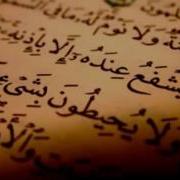 وَلَا نَوْمٌ لَهُ مَا فِي
يَشْفَعُ عِنْدَهُ إِلَّا بِإِذْنِهِ
وَلَا يُحِيطُونَ بِشَيْءٍ